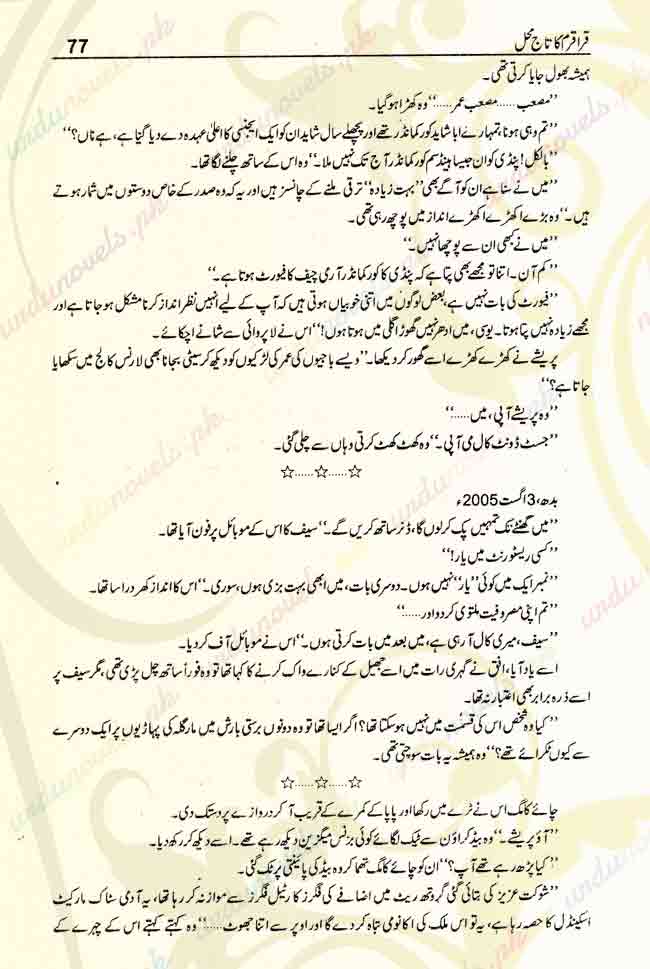 قراقرم کا تاج محل
77
ہمیشہ بھول جایا کرتی تھی۔
’’مصعب......مصعب عمر......‘‘وہ کھڑا ہو گیا۔
’’تم وہی ہونا، تمہارے ابا شاید کور کمانڈر تھے اور پچھلے سال شاید ان کو ایک ایجنسی کا اعلیٰ عہدہ دے دیا گیا ہے، ہے ناں؟‘‘
’’بالکل! پنڈی کو ان جیسا ہینڈسم کور کمانڈر آج تک نہیں ملا۔‘‘وہ اس کے ساتھ چلنے لگا تھا۔
’’میں نے سنا ہے ان کو آگے بھی ’’بہت زیادہ‘‘ ترقی ملنے کے چانسز ہیں اور یہ کہ وہ صدر کے خاص دوستوں میں شمار ہوتے
ہیں۔‘‘وہ بڑے اکھڑے اکھڑے انداز میں پوچھ رہی تھی۔
’’میں نے کبھی ان سے پوچھا نہیں۔‘‘
’’کم آن۔ اتنا تو مجھے بھی پتا ہے کہ پنڈی کا کور کمانڈر آرمی چیف کا فیورٹ ہوتا ہے۔‘‘
’’فیورٹ کی بات نہیں ہے، بعض لوگوں میں اتنی خوبیاں ہوتی ہیں کہ آپ کے لیے انہیں نظر انداز کرنا مشکل ہو جاتا ہے اور
مجھے زیادہ نہیں پتا ہوتا۔ یوسی، میں ادھر نہیں گھوڑا گلی میں ہوتا ہوں!‘‘اس نے لاپروائی سے شانے اچکائے۔
پریشے نے کھڑے کھڑے اسے گھور کر دیکھا۔’’ویسے باجیوں کی عمر کی لڑکیوں کو دیکھ کر سیٹی بجانا بھی لارنس کالج میں سکھایا
جاتا ہے؟‘‘
’’وہ پریشے آپی، میں......‘‘
’’جسٹ ڈونٹ کال می آپی۔‘‘وہ کھٹ کھٹ کرتی وہاں سے چلی گئی۔
☆......☆......☆
بدھ، 3 اگست 2005ء
’’میں گھنٹے تک تمہیں پک کر لوں گا، ڈنر ساتھ کریں گے۔‘‘سیف کا اس کے موبائل پر فون آیا تھا۔
’’کسی ریسٹورنٹ میں یار!‘‘
’’نمبر ایک میں کوئی ’’یار‘‘ نہیں ہوں۔ دوسری بات، میں ابھی بہت بزی ہوں، سوری۔‘‘اس کا انداز کھردرا سا تھا۔
’’تم اپنی مصروفیت ملتوی کر دو اور......‘‘
’’سیف، میری کال آ رہی ہے، میں بعد میں بات کرتی ہوں۔‘‘اس نے موبائل آف کر دیا۔
اسے یاد آیا، افق نے گہری رات میں اسے جھیل کے کنارے واک کرنے کا کہا تھا تو وہ فوراً ساتھ چل پڑی تھی، مگر سیف پر
اسے ذرہ برابر بھی اعتبار نہ تھا۔
’’کیا وہ شخص اس کی قسمت میں نہیں ہو سکتا تھا؟ اگر ایسا تھا تو وہ دونوں برستی بارش میں مارگلہ کی پہاڑیوں پر ایک دوسرے
سے کیوں ٹکرائے تھے؟‘‘وہ ہمیشہ یہ بات سوچتی تھی۔
☆......☆......☆
چائے کا مگ اس نے ٹرے میں رکھا اور پاپا کے کمرے کے قریب آ کر دروازے پر دستک دی۔
’’آؤ پریشے۔‘‘وہ بیڈ کراؤن سے ٹیک لگائے کوئی بزنس میگزین دیکھ رہے تھے۔ اسے دیکھ کر رکھ دیا۔
’’کیا پڑھ رہے تھے آپ؟‘‘ان کو چائے کا مگ تھما کر وہ بیڈ کی پائنتی پر ٹک گئی۔
’’شوکت عزیز کی بتائی گئی گروتھ ریٹ میں اضافے کی فگرز کا رئیل فگرز سے موازنہ کر رہا تھا، یہ آدمی سٹاک مارکیٹ
اسکینڈل کا حصہ رہا ہے، یہ تو اس ملک کی اکانومی تباہ کر دے گا اور اوپر سے اتنا جھوٹ......‘‘وہ کہتے کہتے اس کے چہرے کے
urdunovels.pk